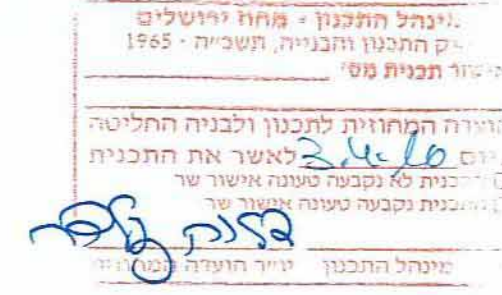 מינהל התכנון - מחוז ירושלים
חוק התכנון והבנייה, תשכ״ה - 1965
אישור תכנית מס׳
הועדה המחוזית לתכנון ולבניה החליטה
ביום 3.4.16 לאשר את התכנית
התכנית לא נקבעה טעונה אישור שר
התכנית נקבעה טעונה אישור שר
מינהל התכנון יו״ר הועדה המחוזית